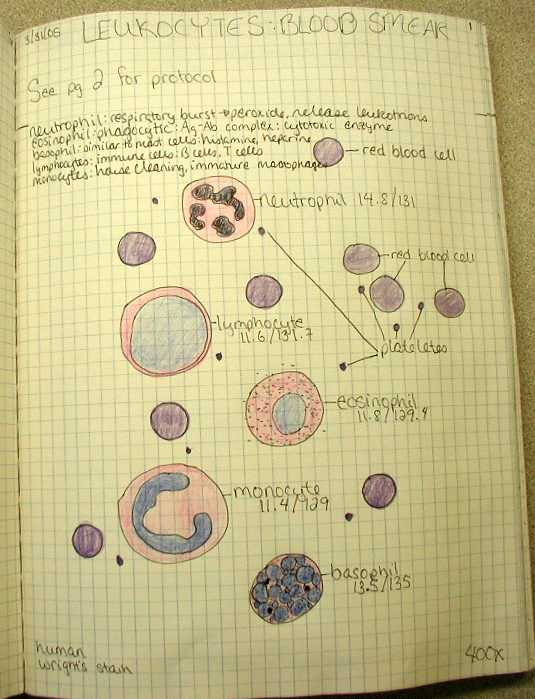 3/31/06
LEUKOCYTES: BLOOD SMEAR
1
See pg 2 for protocol
neutrophil: respiratory burst → peroxide, release leukotrions
eosinophil: phagocytic: Ag-Ab complex: cytotoxic enzyme
basophil: similar to mast cells: histamine, heperine
lymphocytes: immune cells: B cells, T cells
monocytes: house cleaning, immature macrophages
red blood cell
neutrophil 14.8/131
red blood cell
lymphocyte
11.6/131.7
plateletes
eosinophil
11.8/129.4
monocyte
11.4/929
basophil
13.5/135
human
wright's stain
400x